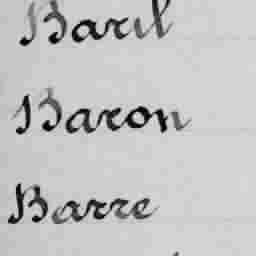 Baril
Baron
Barre